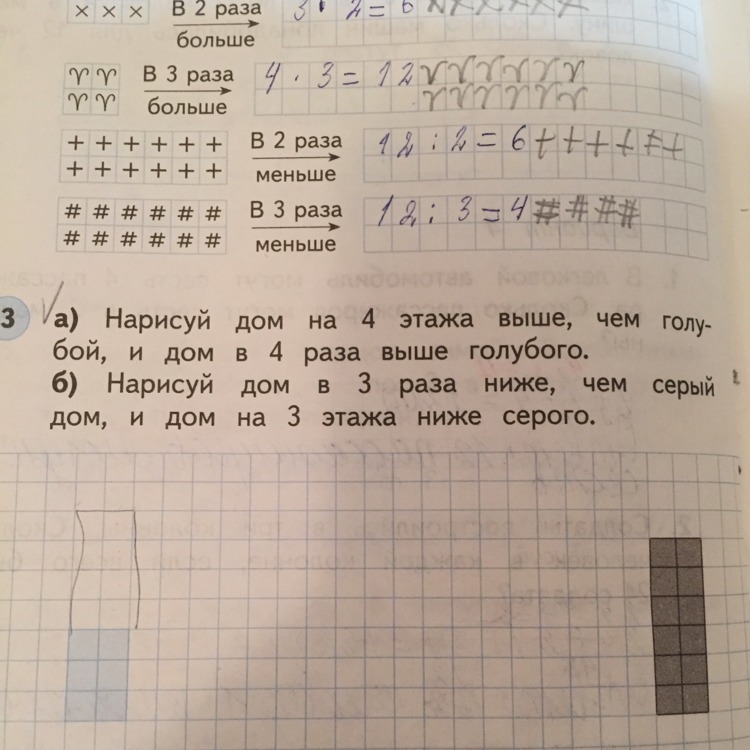 × × × В 2 раза 3 · 2 = 6 ××××××
больше
♈ ♈ В 3 раза 4 · 3 = 12 ♈♈♈♈♈♈
♈ ♈ больше ♈♈♈♈♈♈
+ + + + + + В 2 раза 12 : 2 = 6 + + + + + +
+ + + + + + меньше
# # # # # # В 3 раза 12 : 3 = 4 # # # #
# # # # # # меньше
3 а) Нарисуй дом на 4 этажа выше, чем голу-
бой, и дом в 4 раза выше голубого.
б) Нарисуй дом в 3 раза ниже, чем серый
дом, и дом на 3 этажа ниже серого.